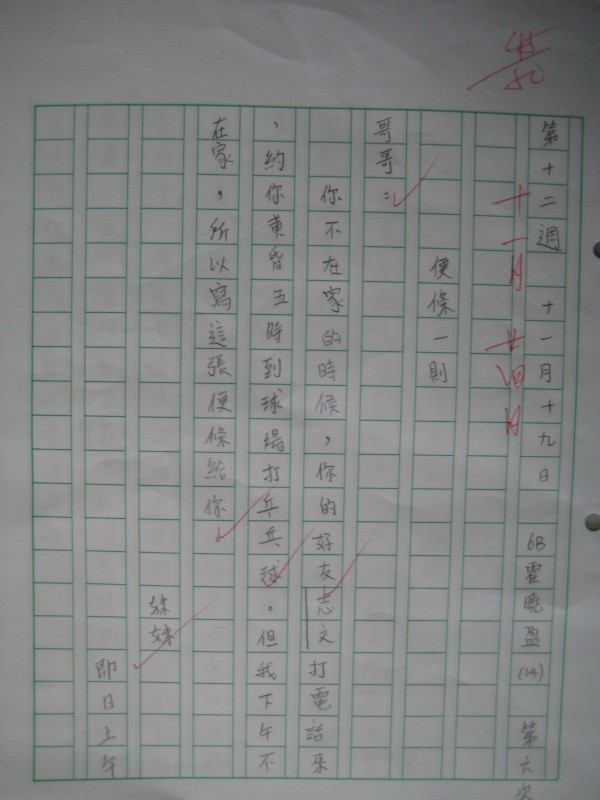 45/50
第十二週 十一月十九日 6B 霍曉盈 (14) 第六次
十一月廿四日
便條一則
哥哥：
你不在家的時候，你的好友志文打電話來
，約你黃昏五時到球場打乒乓球。但我下午不
在家，所以寫這張便條給你。
妹妹
即日上午